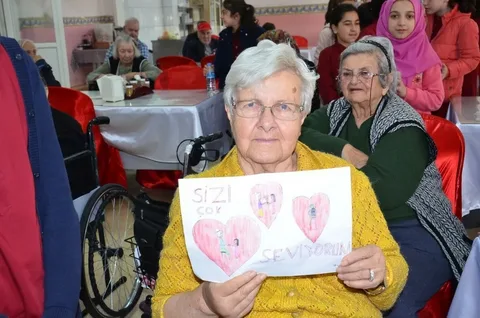 SiZi
ÇOK
SEViYORUM